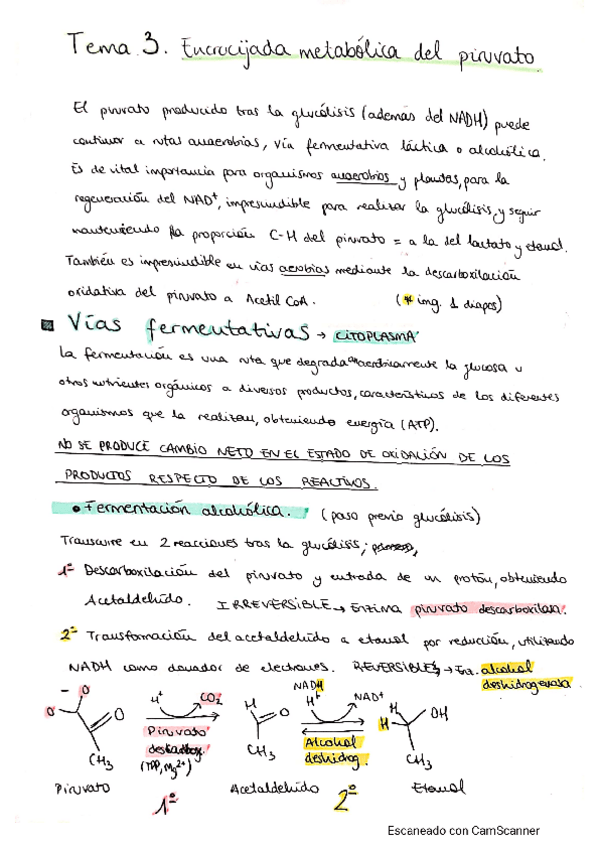 Tema 3. Encrucijada metabólica del piruvato.
El piruvato producido tras la glucólisis (además del NADH) puede
continuar a rutas anaerobias, vía fermentativa láctica o alcohólica.
Es de vital importancia para organismos anaerobios y plantas, para la
regeneración del NAD⁺, imprescindible para realizar la glucólisis, y seguir
manteniendo la proporción C-H del piruvato = a la del lactato y etanol.
También es imprescindible en vías aerobias mediante la descarboxilación
oxidativa del piruvato a Acetil CoA. (* img. 1 diapos)
Vías fermentativas → CITOPLASMA
La fermentación es una ruta que degrada anaeróbicamente la glucosa u
otros nutrientes orgánicos a diversos productos, característicos de los diferentes
organismos que la realizan, obteniendo energía (ATP).
NO SE PRODUCE CAMBIO NETO EN EL ESTADO DE OXIDACIÓN DE LOS
PRODUCTOS RESPECTO DE LOS REACTIVOS.
• Fermentación alcohólica. (paso previo glucólisis)
Transcurre en 2 reacciones tras la glucólisis;
1º Descarboxilación del piruvato y entrada de un protón, obteniendo
Acetaldehído. IRREVERSIBLE → Enzima piruvato descarboxilasa.
2º Transformación del acetaldehído a etanol por reducción, utilizando
NADH como donador de electrones. REVERSIBLE → Enz. alcohol
deshidrogenasa
O⁻ O O CH₃
H⁺ CO₂
Piruvato
descarbox.
(TPP, Mg²⁺)
H O CH₃
NADH H⁺ NAD⁺
Alcohol
deshidrog.
H H OH CH₃
Piruvato Acetaldehído Etanol
1º 2º
Escaneado con CamScanner